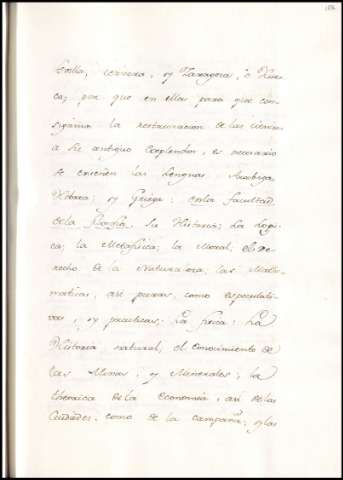 villa, cervera, y Zaragoza, ô Hues-
ca; por que en ellas para que con-
sigamos la restauracion de las ciencias
a su antiguo esplendor, es necesario
se enseñen las Lenguas, Arabiga,
Hebrea, y Griega: en la facultad
de la filosofia su Historia; La Logi-
ca; la Metafisica; la Moral; el De-
recho de la Naturaleza, las Mate-
maticas, asi puras, como especulati-
vas, y practicas; La fisica: La
Historia natural; el conocimiento de
las Minas, y Minerales; la
theorica de la Economia, asi de las
Ciudades, como de la campaña; y las